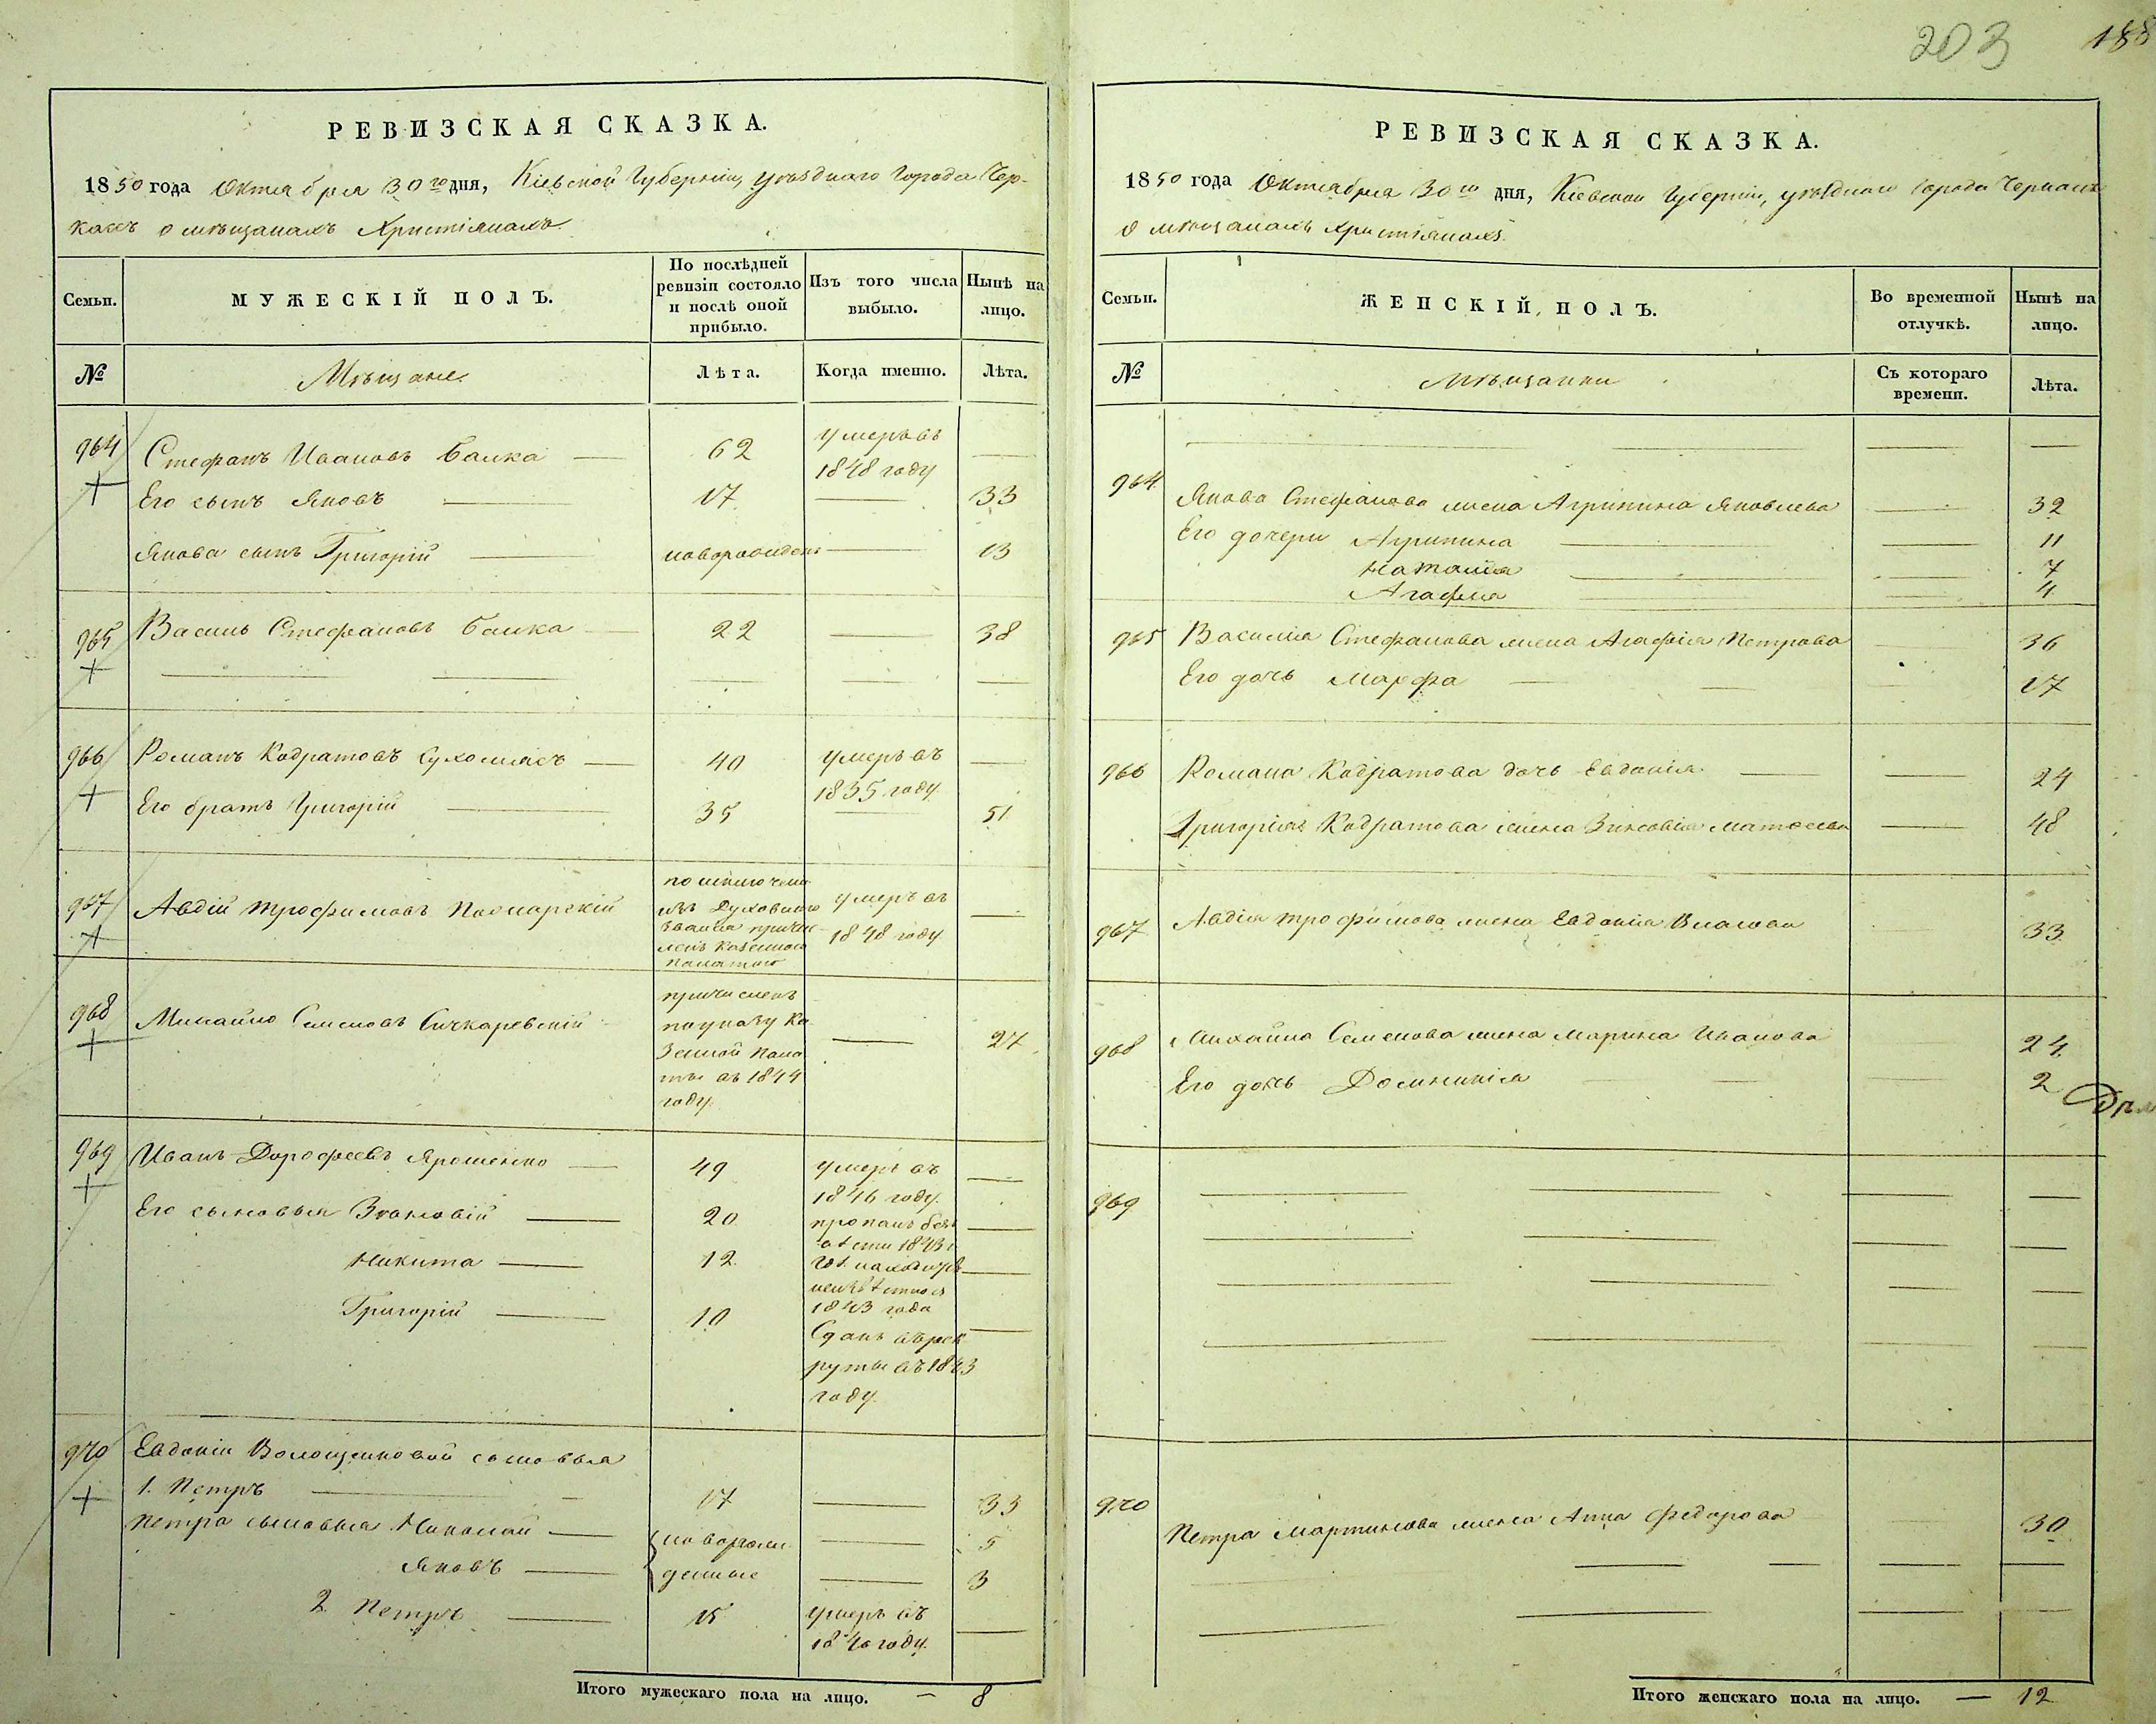 203 188
РЕВИЗСКАЯ СКАЗКА.
1850 года Октября 30го дня, Кіевской Губерніи, уѣзднаго города Чер-
касъ о мѣщанахъ Христіянахъ.
Семьи.
МУЖЕСКІЙ ПОЛЪ.
По послѣдней
ревизіи состояло
и послѣ оной
прибыло.
Изъ того числа
выбыло.
Нынѣ на
лицо.
№
Мѣщане.
Лѣта.
Когда именно.
Лѣта.
964 Стефанъ Ивановъ Балка — 62 умеръ въ —
1848 году
Его сынъ Яковъ — 17. — 33
Якова сынъ Григорій — новорожденъ — 13
965 Василь Стефановъ Балка — 22 — 38
966 Романъ Кодратовъ Сухомлясъ — 40 умеръ въ —
1835 году
Его братъ Григорій — 35 — 51.
967 Авдій Трофимовъ Пос
по исключені
изъ Духовнаго
званія причи-
ленъ Казенною
Палатою
умеръ въ —
1848 году
968 Михайло Семеновъ Сичкаревскій
причисленъ
по указу Ка
зенной Пала
ты въ 1844
году.
— 27
969 Иванъ Дорофеевъ Ярошенко — 49 умеръ въ —
1846 году.
Его сыновья Зѣновій — 20 пропалъ безъ —
вѣсти 1843 г
Никита — 12. —
неизвѣстно съ
1843 года
Григорій — 10 Сданъ въ рек —
руты въ 1843
году.
970 Евдокіи Волощенковой сыновья
1. Петръ — 17 — 33
Петра сыновья Николай — новорож — 5
Яковъ — денные — 3
2 Петръ — 15 умеръ въ —
1840 году.
Итого мужескаго пола на лицо. — 8
РЕВИЗСКАЯ СКАЗКА.
1850 года Октября 30го дня, Кіевской Губерніи, уѣзднаго города Черкасъ
о мѣщанахъ Христіянахъ.
Семьи.
ЖЕНСКІЙ ПОЛЪ.
Во временной
отлучкѣ.
Нынѣ на
лицо.
№
Мѣщанки
Съ котораго
времени.
Лѣта.
964 Якова Стефанова жена Агрипина Яковлева — 32
Его дочери Агрипина — 11
Наталія — 7
Агафія — 4
965 Василія Стефанова жена Агафія Петрова 36
Его дочь Марфа — 17
966 Романа Кодратова дочь Евдокія — 24
Григорія Кодратова жена Зиновія Матвеева — 48
967 Авдія Трофимова жена Евдокія Власова 33
968 Михайла Семенова жена Марина Иванова 24
Его дочь Домникія 2
969
970 Петра Мартинова жена Анна Федорова 30
Итого женскаго пола на лицо. — 12